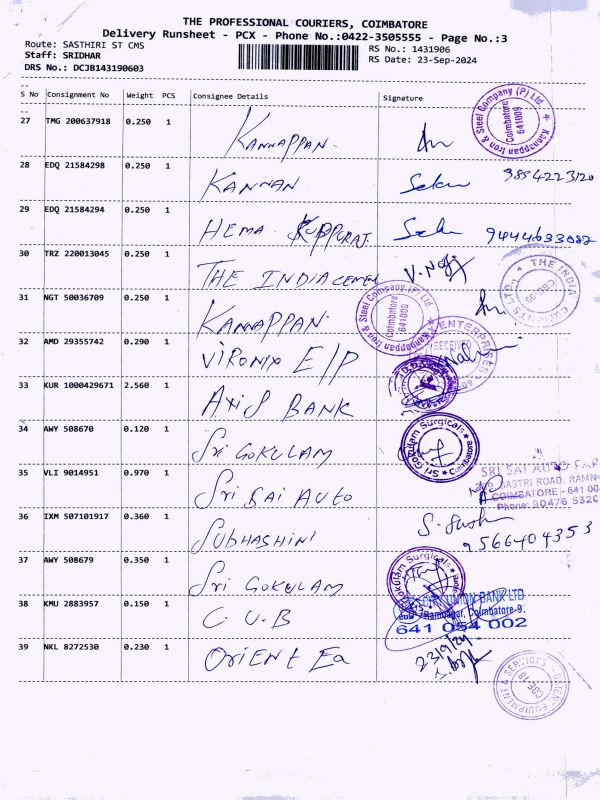 THE PROFESSIONAL COURIERS, COIMBATORE
Delivery Runsheet - PCX - Phone No.:0422-3505555 - Page No.:3
Route: SASTHIRI ST CMS
RS No.: 1431906
Staff: SRIDHAR
RS Date: 23-Sep-2024
DRS No.: DCJB143190603
S No Consignment No Weight PCS Consignee Details Signature
Kannappan Iron & Steel Company (P) Ltd
Coimbatore
641009
27 TMG 200637918 0.250 1 KANNAPPAN.
28 EDQ 21584298 0.250 1 KANNAN 9854223120
29 EDQ 21584294 0.250 1 HEMA KUPPURAJ. 9444633082
30 TRZ 220013045 0.250 1 THE INDIA CEMEN V.
THE INDIA
CBE-09
31 NGT 50036709 0.250 1 KANNAPPAN.
Kannappan Iron & Steel Company (P) Ltd
Coimbatore
641009
32 AMD 29355742 0.290 1 VIRONIX E/P
ENTERPRISES
RECEIVED
33 KUR 1000429671 2.560 1 AXIS BANK
34 AWY 508670 0.120 1 Sri GOKULAM
Sri Gokulam Surgicals
Coimbatore
35 VLI 9014951 0.970 1 Sri SAI AUTO
SRI SAI AUTO
SASTRI ROAD, RAMN
COIMBATORE - 641 00
Phone: 90476 5320
36 IXM 507101917 0.360 1 SUBHASHINI S.
9566404353
37 AWY 508679 0.350 1 Sri GOKULAM
Gokulam Surgicals
38 KMU 2883957 0.150 1 C.U.B
UNION BANK LTD
Ramnagar, Coimbatore-9.
641 054 002
39 NKL 8272530 0.230 1 ORIENT Ea
23/9/24
ORIENT EQUIPMENT & SERVICES
CBE-18